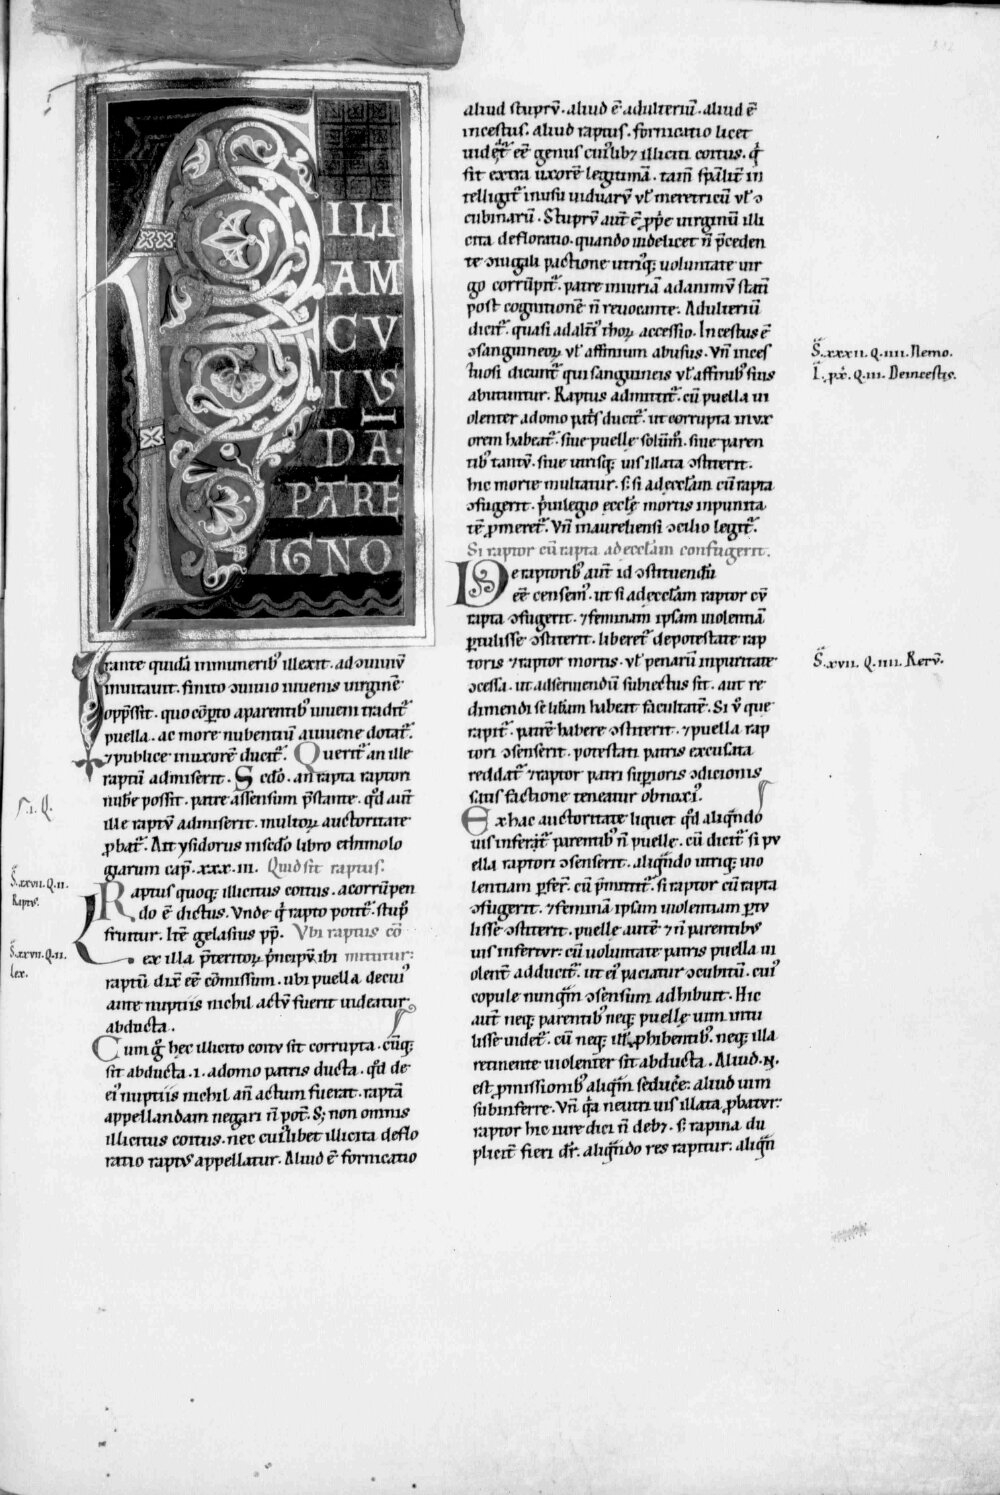 F
ILI
AM
CV
IVS
DĀ.
PATRE
IGNO
rante quidā inmunerib; illexit. ad ↄuiuiū
inuitauit. finito ↄuiuio iuuenis uirginē
opp̄ssit. quo cōperto a parentib; iuueni tradit̄
puella. ac more nubentiū a iuuene dotat̄.
⁊ publice in uxorē ducit̄. Querit̄ an ille
raptū admiserit. Scdō. an rapta raptori
nubē possit. patre assensum p̄stante. qd̄ aut̄
ille raptū admiserit. multoꝝ auctoritate
ꝓbat̄. Ait ysidorus in scdō libro ethimolo
giarum cap̄. xxx.iii. Quid sit raptus.
Raptus quoq; illicitus coitus. a corrūpen
do ē dictus. Vnde q̇ rapto potit̄. stup̄
fruitur. Itē gelasius pp̄. Vbi raptus cō
Lex illa p̄teritoꝝ p̄ncipū. ibi mittitur:
raptū dix̄ eē cōmissum. ubi puella de cui'
ante nuptiis nichil actū fuerit uideatur
abducta.
Cum g̊ hec illicito coitu sit corrupta. cūq;
sit abducta .i. a domo patris ducta. qd̄ de
ei' nuptiis nichil an̄ actum fuerat. raptā
appellandam negari n̄ pot̄. S; non omnis
illicitus coitus. nec cui'libet illicita deflo
ratio raptus appellatur. Aliud ē fornicatio
aliud stuprū. aliud ē adulteriū. aliud ē
incestus. aliud raptus. fornicatio licet
uidet̄ eē genus cui'lib; illiciti coitus. q̇
sit extra uxorē legitimā. tam̄ sp̄alit̄ in
telligit̄ in usu uiduarū ut̄ meretricū ut̄ ↄ
cubinarū. Stuprū aut̄ ē ꝓp̄e uirginū illi
cita defloratio. quando uidelicet n̄ p̄ceden
te ↄiugali pactione utriq; uoluntate uir
go corrūpit̄. patre iniuriā ad animū statī
post cognitionē n̄ reuocante. Adulteriū
dicit̄. quasi ad alt̄i' thoꝝ accessio. Incestus ē
ↄsanguineoꝝ ut̄ affinium abusus. Vn̄ inces
tuosi dicunt̄ qui sanguineis ut̄ affinib; suis
abutuntur. Raptus admittit̄. cū puella ui
olenter a domo pat̄s ducit̄. ut corrupta in ux
orem habeat̄. siue puelle solūm̄. siue paren
tib; tantū. siue utrisq; uis illata ↄstiterit.
hic morte multatur. s; si ad ecclam cū rapta
ↄfugerit. p̄uilegio ecclę mortis inpunita
tē ꝓmeret̄. Vn̄ in aureliensi ↄcilio legit̄.
Si raptor cū rapta ad ecclam confugerit.
De raptorib; aut̄ id ↄstituendū
eē censem'. ut si ad ecclam raptor cū
rapta ↄfugerit. ⁊ feminam ipsam uiolentiā
ꝑtulisse ↄstiterit. liberet̄ de potestate rap
toris ⁊ raptor mortis. ut̄ penarū inpunitate
ↄcessa. ut ad seruiendū subiectus sit. aut re
dimendi se lib̄am habeat facultatē. Si ū que
rapit̄. patrē habere ↄstiterit. ⁊ puella rap
tori ↄsenserit. potestati patris excusata
reddat̄ ⁊ raptor patri sup̄ioris ↄdicionis
satisfactione teneatur obnoxi'.
Ex hac auctoritate liquet qd̄ aliqn̄do
uis infert̄ parentib; n̄ puelle. cū dicit̄ si pu
ella raptori ↄsenserit. aliqn̄do utriq; uio
lentiam ꝑfert̄. cū p̄mittit̄. si raptor cū rapta
ↄfugerit. ⁊ feminā ipsam uiolentiam ꝑtu
lisse ↄstiterit. puelle autē ⁊ n̄ parentibus
uis infertur: cū uoluntate patris puella ui
olent̄ adducit̄. ut ei' paciatur ↄcubitū. cui'
copule nunq̄m ↄsensum adhibuit. Hic
aut̄ neq; parentib; neq; puellę uim intu
lisse uidet̄. cū neq; illis ꝓhibentib; neq; illa
retinente uiolenter sit abducta. Aliud. n̄.
est ꝓmissionib; aliq̄m seducē: aliud uim
subinferre. Vn̄ q̄a neutri uis illata ꝓbatur:
raptor hic iure dici n̄ deb;. s; rapina du
plicit̄ fieri dr̄. aliqn̄do res rapitur: aliqn̄
S. xxxii. Q. iiii. Nemo.
I. px̄. Q. iii. De incestis.
S. xvii. Q. iiii. Reū.
.i. Q.
S. xxvii. Q. ii.
Raptus.
S. xxvii. Q. ii.
lex.